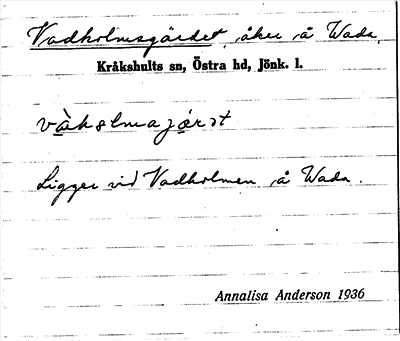 Vadholmsgärdet, åker å Wada.
Kråkshults sn, Östra hd, Jönk. l.
Ligger vid Vadholmen å Wada.
Annalisa Anderson 1936